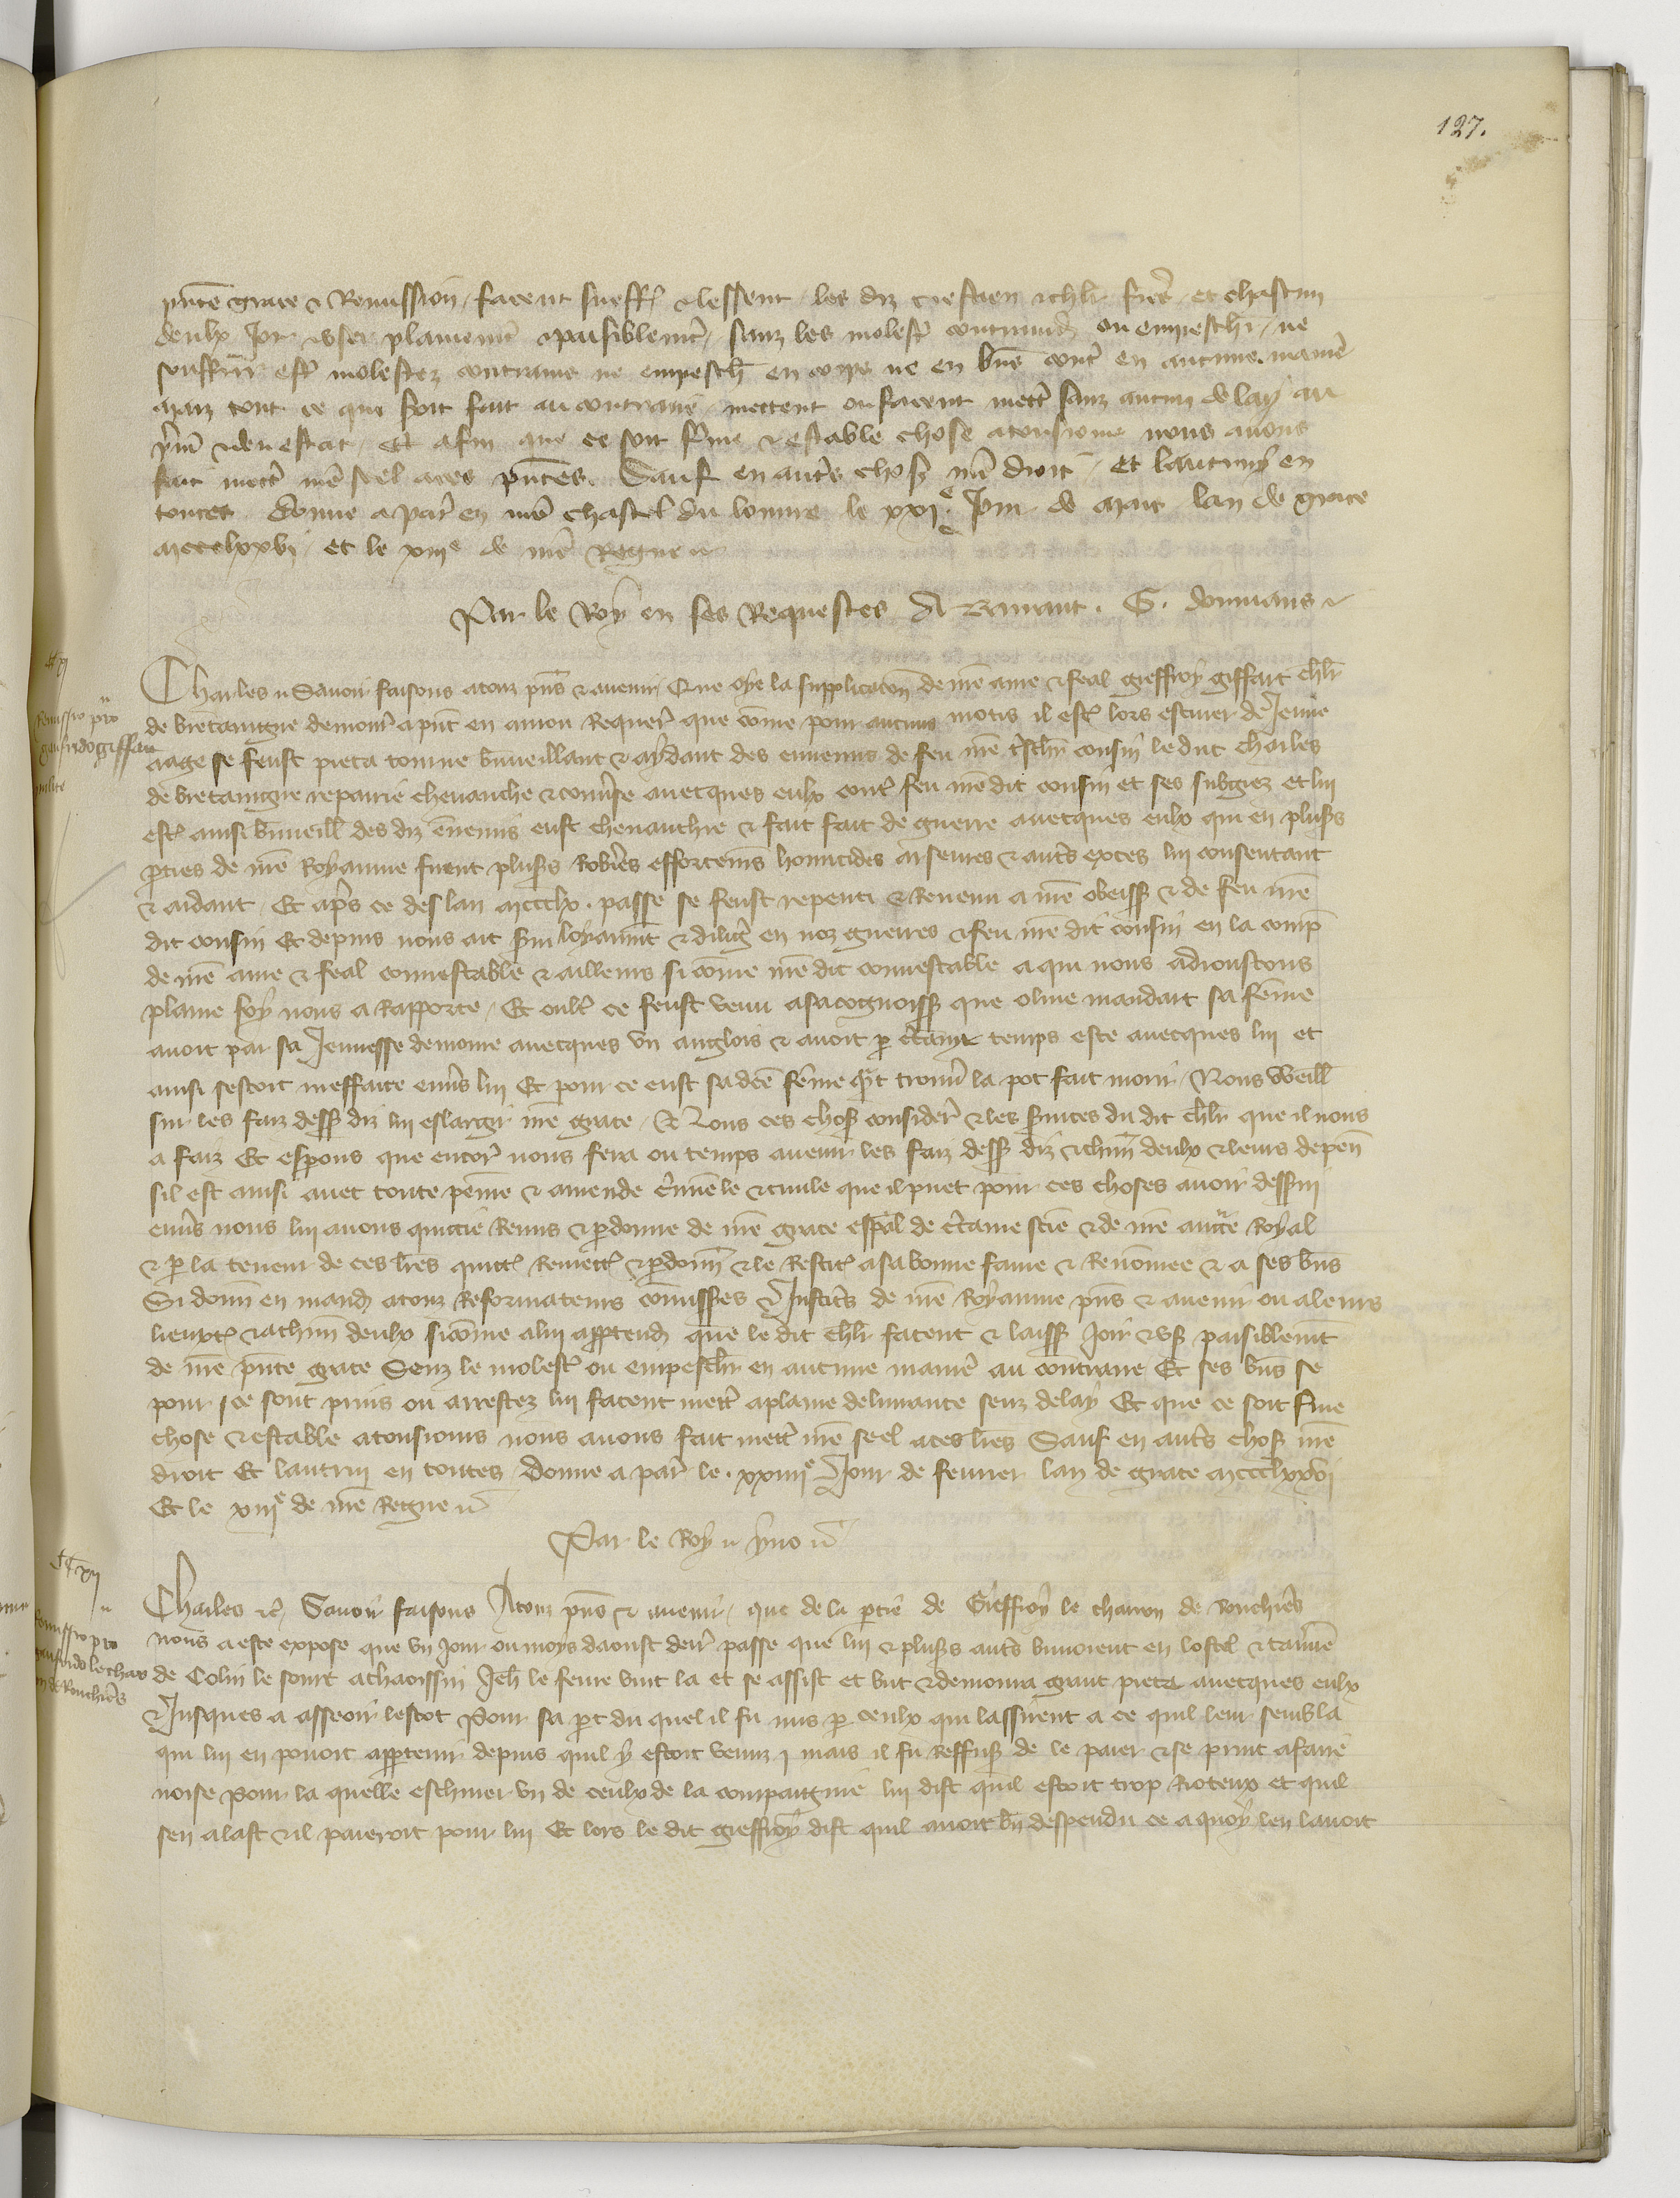 127.
pnte grace & Remission facent sueffr & lessent les diz crestien & chlr freres et chascun
deulx Joir & user plainement & paisiblement sanz les molester contraindre ou empeschier ne
souffrir estre molestez contrains ne empeschiez en corps ne en biens contre en aucune maniere
Maiz tout ce qui soit fait au contraire mettent ou facent mettre sanz aucun delay au
prim & deu estat Et afin que ce soit ferme & estable chose a tousiours nous avons
fait mettre nre seel a ces pntes. Sauf en autres choses nre droit Et lautruy en
toutes Donne a Par en nre chastel du louvre le xxi.e Jour de Mars lan de grace
mccclxxvi et le xiiie de nre Regne
Par le Roy en ses Requestes G. dormans
Charles Savoir faisons a touz pns & avenir Que oye la supplicacion de nre ame & feal gieffroy giffart chlr
de bretaingne demour a pnt en aniou Requer que come pour aucuns motis il estre lors escuier de Jeune
aage se feust pieca tourne bienveillant & aydant des ennemis de feu nre treschr cousin le duc charles
de bretaingne repairie chevauche & converse avecques eulx contre feu nre dit cousin et ses subgiez et lui
estre ainsi bienveill des diz ennemis eust chevauchie & fait fait de guerre avecques eulx qui en pluss
pties de nre Royaume firent pluss Roberies efforcemens homicides arseures & autres exces lui consentant
& aidant Et apres ce des lan mccclx. passe se feust repenti & Revenu a nre obeiss & de feu nre
dit cousin Et depuis nous ait servi loyaument & dilig en noz guerres & feu nre dit cousin en la comp
de nre ame & feal connestable & ailleurs si come nre dit connestable a qui nous adioustons
plaine foy nous a Rapporte Et oultre ce feust venu a sa cognoiss que olive mandart sa feme
avoit par sa Jeunesse demoure avecques un anglois & avoit p certain temps este avecques lui et
ainsi sestoit meffaite envers lui Et pour ce eust sa dce feme quant trouver la pot fait morir Nous veill
sur les faiz dess diz lui eslargir nre grace Nous ces choses consider & les services du dit chlr que il nous
a faiz Et esperons que encor nous fera ou temps avenir les faiz dess diz & chun deulx & leurs depen
sil est ainsi avec toute peine & amende criminele & civile que il puet pour ces choses avoir desservi
envers nous lui avons quictie Remis & pdonne de nre grace espal de certaine scie & de nre aucte Royal
& p la teneur de ces lres quict Remett & pdonn & le Restit a sa bonne fame & Renomee & a ses biens
Si donn en mand a touz Reformateurs comisses Justic de nre Royaume pns & avenir ou a leurs
lieuxt & a chun deulx si come a lui apptend que le dit chlr facent & laiss Joir & us paisiblement
de nre pnte grace Senz le molest ou empeschier en aucune maniere au contraire Et ses biens se
pour ce sont prins ou arrestez lui facent mettre a plaine delivrance senz delay Et que ce soit ferme
chose & estable a tousiours nous avons fait mettre nre seel a ces lres Sauf en autres choses nre
droit Et lautruy en toutes Donne a Par le. xxiiiie Jour de fevrier lan de grace mccclxxvi
Et le xiiie de nre Regne
Par le Roy yvo
Charles &c Savoir faisons A touz pns & avenir que de la ptie de Gieffroy le charron de Ronchieres
nous a este expose que un Jour ou moys daoust derr passe que lui & pluss autres buvoient en lostel & taverne
de Colin le a Jeh le fevre vint la et se assist et but & demoura grant piece avecques eulx
& Jusques a asseoir lescot Pour sa pt du quel il fu mis p ceulx qui lassirent a ce quil leur sembla
qui lui en povoit apptenir depuis quil y estoit venuz mais il fu Reffus de le paier & se print a faire
noise Pour la quelle eschiver un de ceulx de la compaignie lui dist quil estoit trop Rioteux et quil
sen alast & il paieroit pour lui Et lors le dit gieffroy dist quil avoit bn despendu ce a quoy len lavoit
Remissio pro
gaufrido giffart
milite
Remissio pro
gaufrido le charron
de Ronchieres